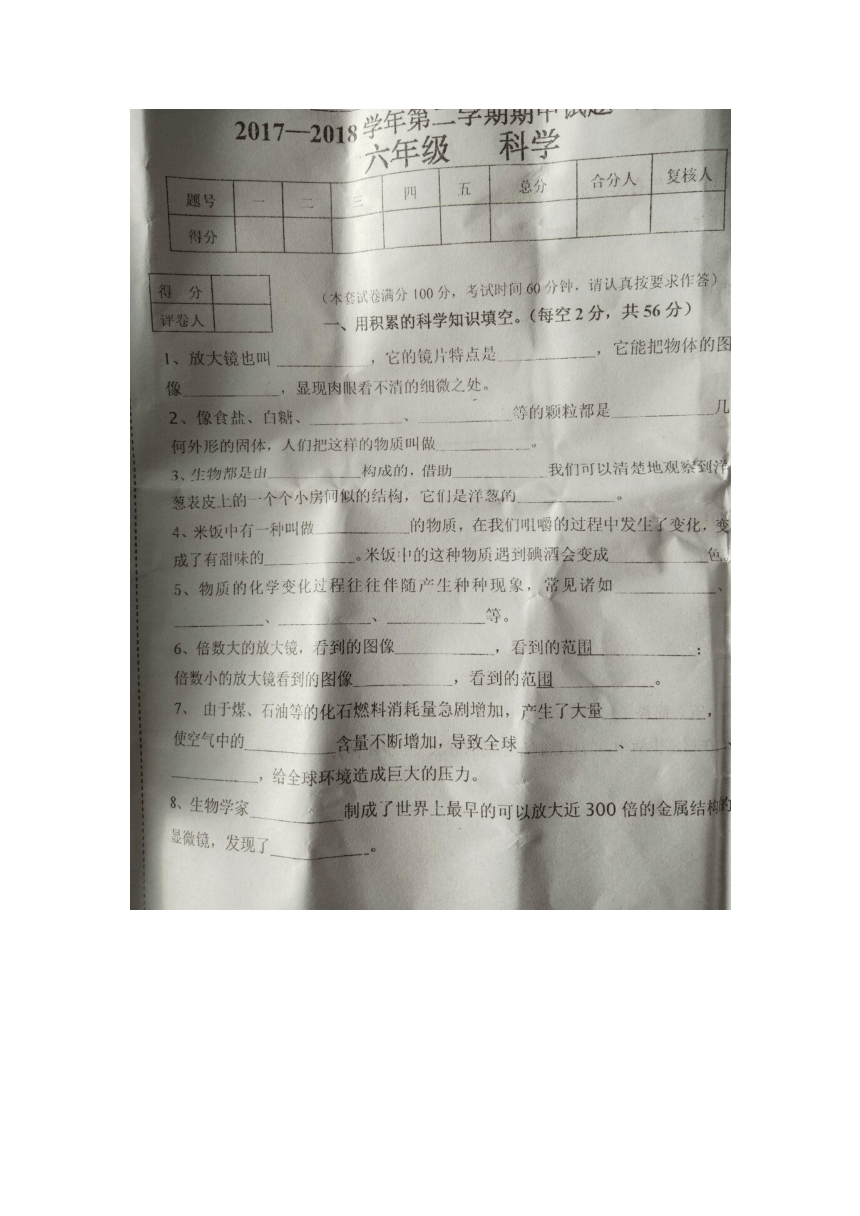 2017—2018学年第二学期期中试题
六年级 科学
题号 一 二 三 四 五 总分 合分人 复核人
得分
得 分
评卷人
（本套试卷满分100分，考试时间60分钟，请认真按要求作答）
一、用积累的科学知识填空。（每空2分，共56分）
1、放大镜也叫__________，它的镜片特点是__________，它能把物体的图
像__________，显现肉眼看不清的细微之处。
2、像食盐、白糖、__________、__________等的颗粒都是__________几
何外形的固体，人们把这样的物质叫做__________。
3、生物都是由__________构成的，借助__________我们可以清楚地观察到洋
葱表皮上的一个个小房间似的结构，它们是洋葱的__________。
4、米饭中有一种叫做__________的物质，在我们咀嚼的过程中发生了变化，变
成了有甜味的__________。米饭中的这种物质遇到碘酒会变成__________色。
5、物质的化学变化过程往往伴随产生种种现象，常见诸如__________、
__________、__________、__________等。
6、倍数大的放大镜，看到的图像__________，看到的范围__________；
倍数小的放大镜看到的图像__________，看到的范围__________。
7、由于煤、石油等的化石燃料消耗量急剧增加，产生了大量__________，
使空气中的__________含量不断增加，导致全球__________、__________、
__________，给全球环境造成巨大的压力。
8、生物学家__________制成了世界上最早的可以放大近300倍的金属结构的
显微镜，发现了__________。